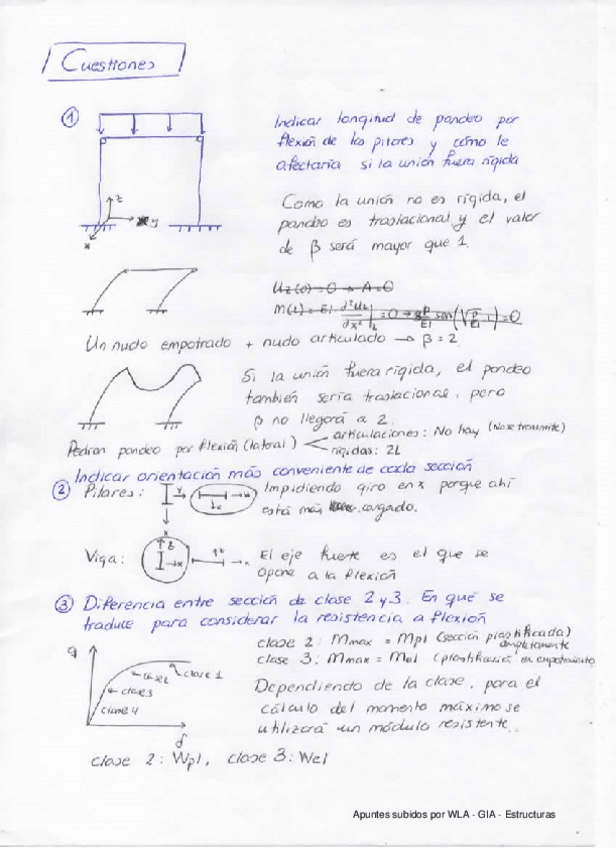 Cuestiones
① Indicar longitud de pandeo por
flexión de los pilares y cómo le
afectaría si la unión fuera rígida
z
y
x
Como la unión no es rígida, el
pandeo es traslacional y el valor
de β será mayor que 1.
Un nudo empotrado + nudo articulado → β = 2
Si la unión fuera rígida, el pandeo
también sería traslacional, pero
β no llegará a 2.
Pedran pandeo por flexión (lateral)
articulaciones: No hay (No se transmite)
rígidas: 2L
Indicar orientación más conveniente de cada sección
② Pilares: Impidiendo giro en x porque ahí
está más cargado.
Viga: El eje fuerte es el que se
opone a la flexión
③ Diferencia entre sección de clase 2 y 3. En qué se
traduce para considerar la resistencia a flexión
clase 2: Mmax = Mpl (sección plastificada completamente)
clase 3: Mmax = Mel
q
clase 2
clase 1
clase 3
clase 4
δ
Dependiendo de la clase, para el
cálculo del momento máximo se
utilizará un módulo resistente.
clase 2: Wpl, clase 3: Wel
Apuntes subidos por WLA - GIA - Estructuras